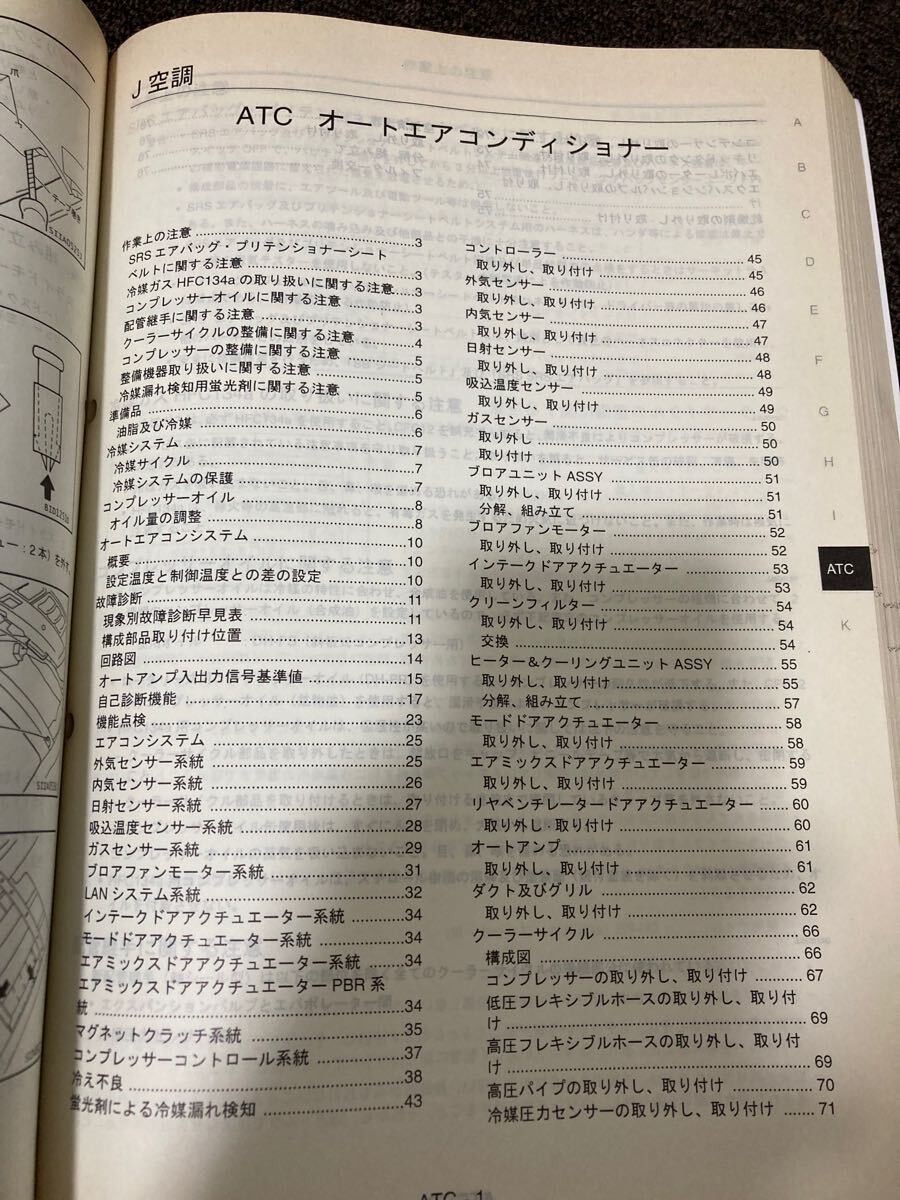 爪
テープ巻き
SIIA0525J
BIDI210D
ュー：2本）を外す。
J 空調
ATC オートエアコンディショナー
作業上の注意 3
SRS エアバッグ・プリテンショナーシート
ベルトに関する注意 3
冷媒ガス HFC134a の取り扱いに関する注意 3
コンプレッサーオイルに関する注意 3
配管継手に関する注意 3
クーラーサイクルの整備に関する注意 4
コンプレッサーの整備に関する注意 5
整備機器取り扱いに関する注意 5
冷媒漏れ検知用蛍光剤に関する注意 5
準備品 6
油脂及び冷媒 6
冷媒システム 7
冷媒サイクル 7
冷媒システムの保護 7
コンプレッサーオイル 8
オイル量の調整 8
オートエアコンシステム 10
概要 10
設定温度と制御温度との差の設定 10
故障診断 11
現象別故障診断早見表 11
構成部品取り付け位置 13
回路図 14
オートアンプ入出力信号基準値 15
自己診断機能 17
機能点検 23
エアコンシステム 25
外気センサー系統 25
内気センサー系統 26
日射センサー系統 27
吸込温度センサー系統 28
ガスセンサー系統 29
ブロアファンモーター系統 31
LAN システム系統 32
インテークドアアクチュエーター系統 34
モードドアアクチュエーター系統 34
エアミックスドアアクチュエーター系統 34
エアミックスドアアクチュエーター PBR 系
統 34
マグネットクラッチ系統 35
コンプレッサーコントロール系統 37
冷え不良 38
蛍光剤による冷媒漏れ検知 43
コントローラー 45
取り外し、取り付け 45
外気センサー 46
取り外し、取り付け 46
内気センサー 47
取り外し、取り付け 47
日射センサー 48
取り外し、取り付け 48
吸込温度センサー 49
取り外し、取り付け 49
ガスセンサー 50
取り外し 50
取り付け 50
ブロアユニット ASSY 51
取り外し、取り付け 51
分解、組み立て 51
ブロアファンモーター 52
取り外し、取り付け 52
インテークドアアクチュエーター 53
取り外し、取り付け 53
クリーンフィルター 54
取り外し、取り付け 54
交換 54
ヒーター＆クーリングユニット ASSY 55
取り外し、取り付け 55
分解、組み立て 57
モードドアアクチュエーター 58
取り外し、取り付け 58
エアミックスドアアクチュエーター 59
取り外し、取り付け 59
リヤベンチレータードアアクチュエーター 60
取り外し・取り付け 60
オートアンプ 61
取り外し、取り付け 61
ダクト及びグリル 62
取り外し、取り付け 62
クーラーサイクル 66
構成図 66
コンプレッサーの取り外し、取り付け 67
低圧フレキシブルホースの取り外し、取り付
け 69
高圧フレキシブルホースの取り外し、取り付
け 69
高圧パイプの取り外し、取り付け 70
冷媒圧力センサーの取り外し、取り付け 71
A
B
C
D
E
F
G
H
I
ATC
K
ATC 1